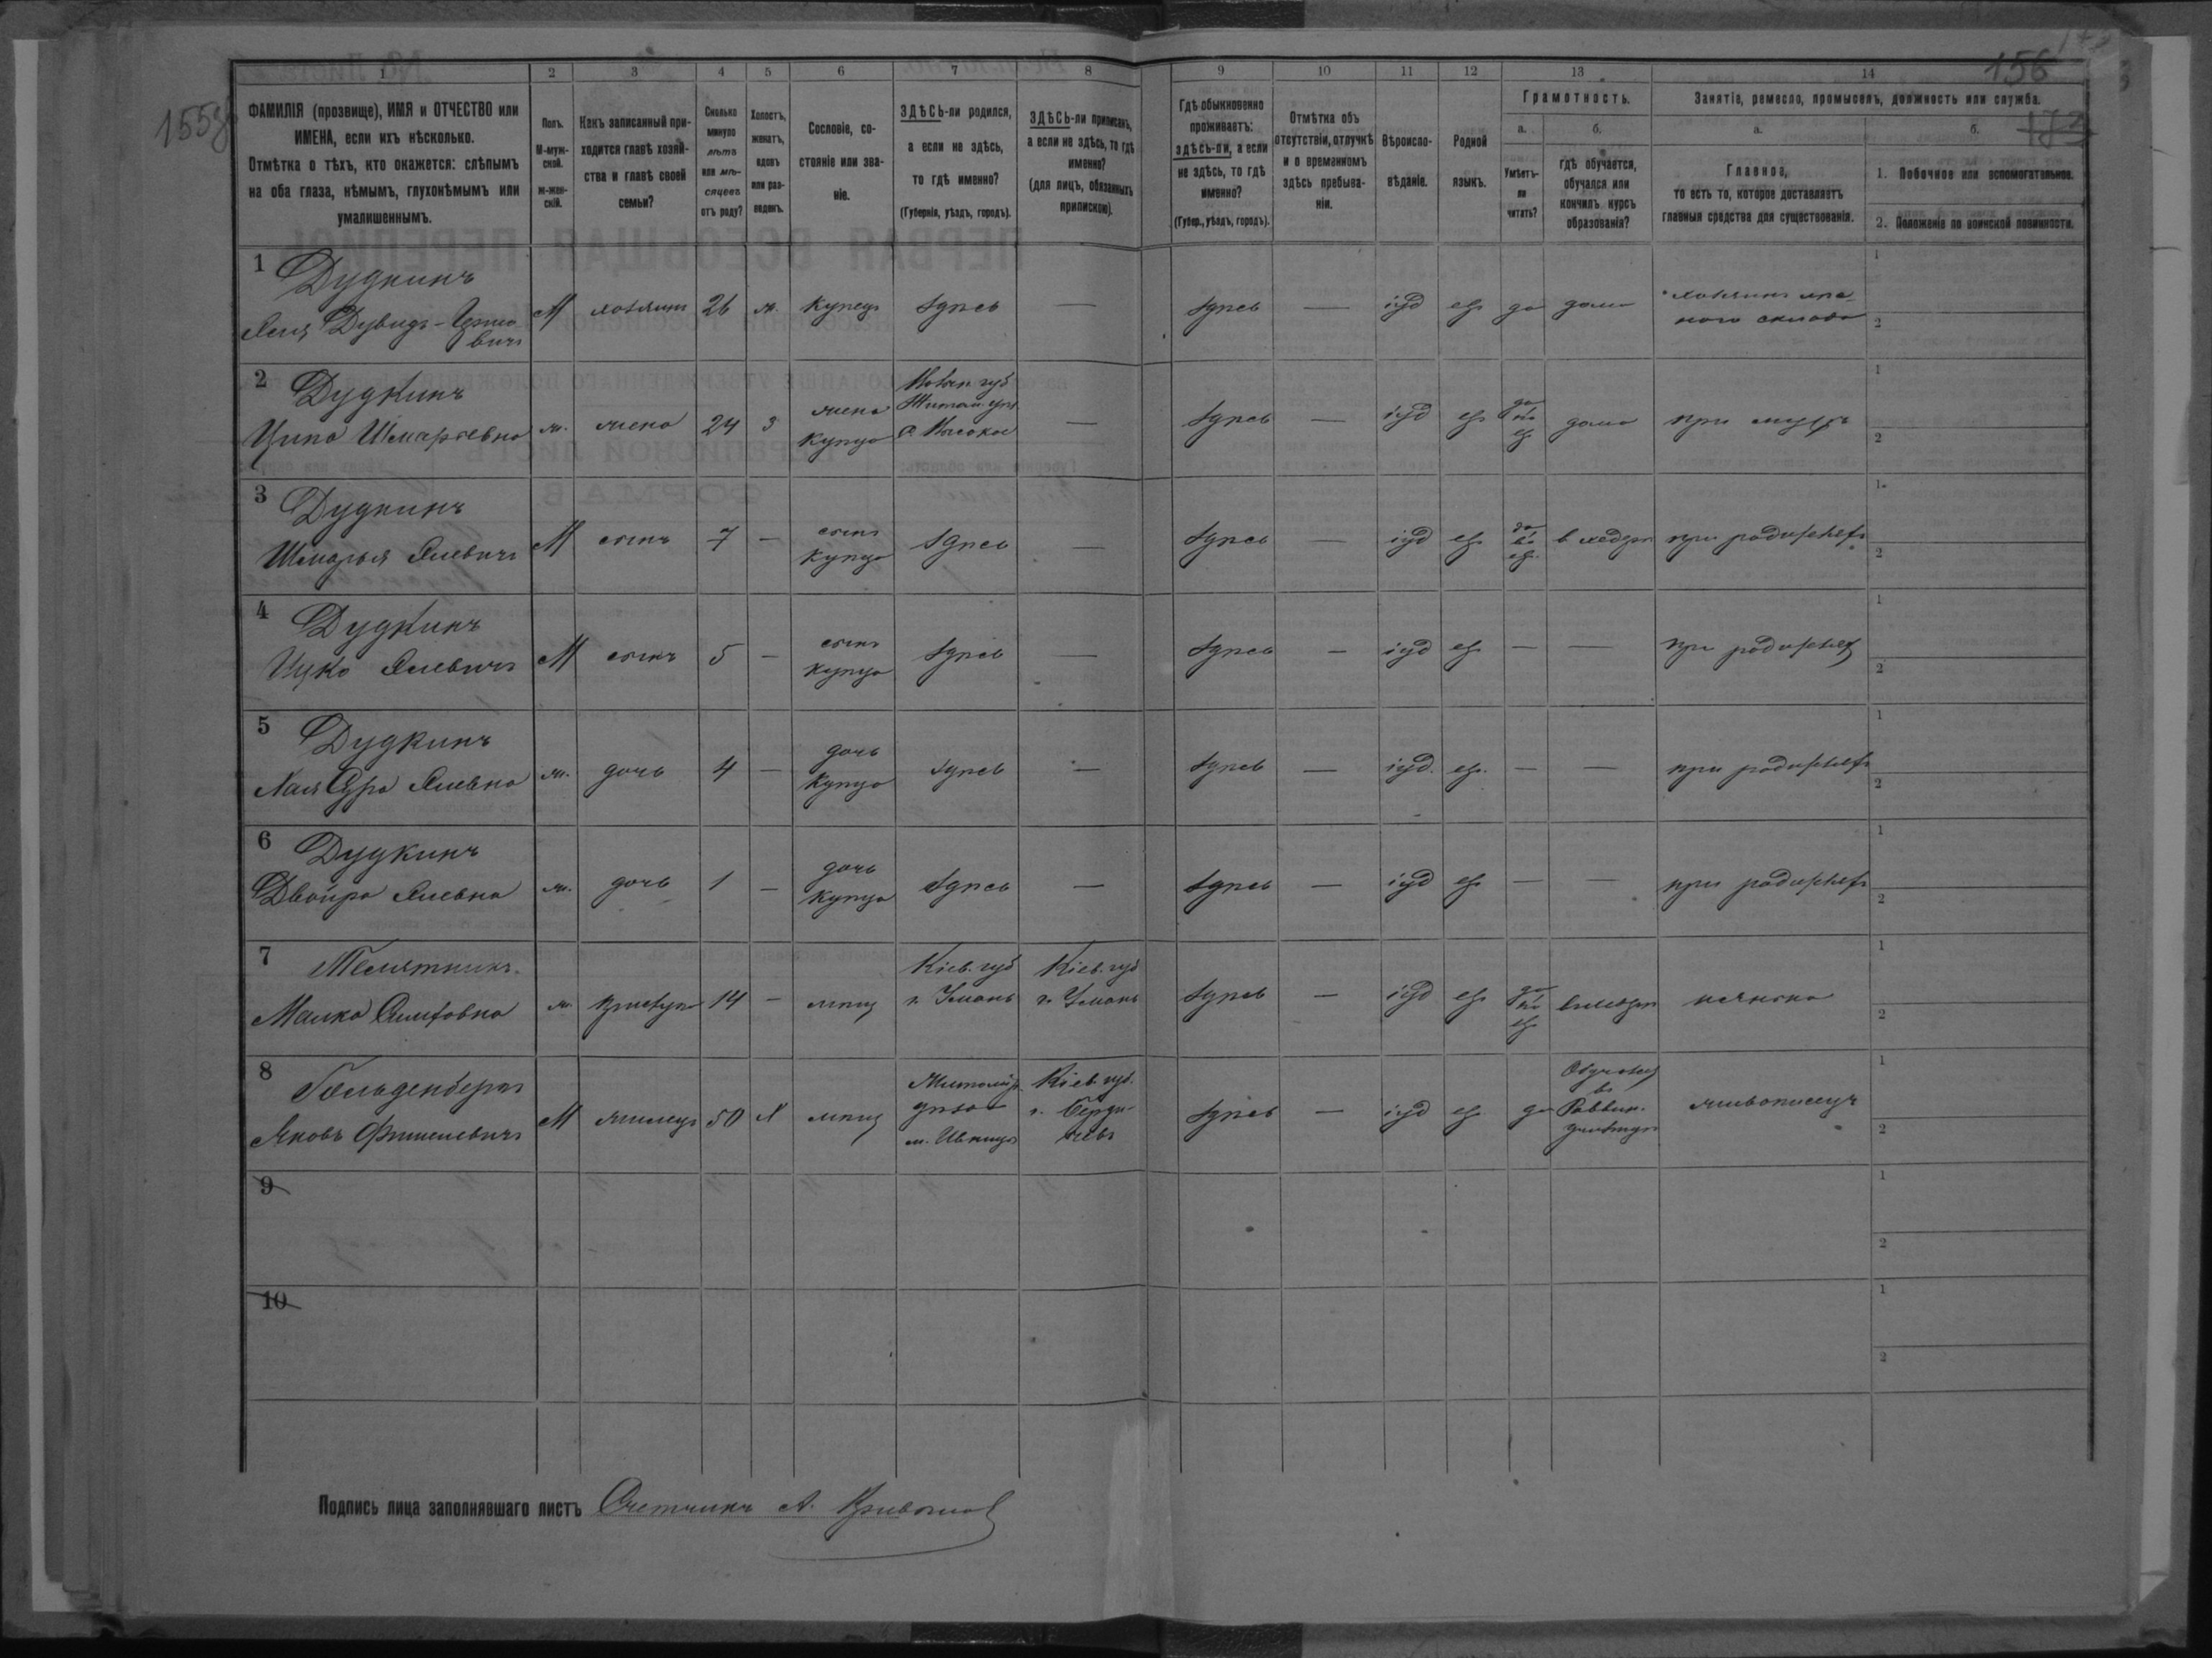 155об
156
173
1 2 3 4 5 6 7 8 9 10 11 12 13 14
ФАМИЛІЯ (прозвище), ИМЯ и ОТЧЕСТВО или
ИМЕНА, если ихъ нѣсколько.
Отмѣтка о тѣхъ, кто окажется: слѣпымъ
на оба глаза, нѣмымъ, глухонѣмымъ или
умалишеннымъ.
Полъ.
М-муж-
ской.
ж-жен-
скій.
Какъ записанный при-
ходится главѣ хозяй-
ства и главѣ своей
семьи?
Сколько
минуло
лѣтъ
или мѣ-
сяцевъ
отъ роду?
Холостъ,
женатъ,
вдовъ
или раз-
веденъ.
Сословіе, со-
стояніе или зва-
ніе.
ЗДѢСЬ-ли родился,
а если не здѣсь,
то гдѣ именно?
(Губернія, уѣздъ, городъ).
ЗДѢСЬ-ли приписанъ,
а если не здѣсь, то гдѣ
именно?
(для лицъ, обязанныхъ
припискою).
Гдѣ обыкновенно
проживаетъ:
здѣсь-ли, а если
не здѣсь, то гдѣ
именно?
(Губер., уѣздъ, городъ).
Отмѣтка объ
отсутствіи, отлучкѣ
и о временномъ
здѣсь пребыва-
ніи.
Вѣроиспо-
вѣданіе.
Родной
языкъ.
Грамотность.
а.
Умѣетъ-
ли
читать?
б.
гдѣ обучается,
обучался или
кончилъ курсъ
образованія?
Занятіе, ремесло, промыселъ, должность или служба.
а.
Главное,
то есть то, которое доставляетъ
главныя средства для существованія.
б.
1. Побочное или вспомогательное.
2. Положеніе по воинской повинности.
1 Дудкинъ
Дувидъ-
вичъ
М хозяинъ 26 ж. купецъ здѣсь — здѣсь — іуд евр да дома хозяинъ
склада
1
2
2 Дудкинъ
Ципа Шмарьевна
ж. жена 24 з жена
купца
Волын. губ
Житом. уѣз
с. Высокое
— здѣсь — іуд евр да
по
евр
дома при мужѣ
1
2
3 Дудкинъ
Шмарья
М сынъ 7 — сынъ
купца
здѣсь — здѣсь — іуд евр да
по
евр.
в хедерѣ при родителяхъ
1
2
4 Дудкинъ
Ицко
М сынъ 5 — сынъ
купца
здѣсь — здѣсь — іуд евр — — при родителяхъ
1
2
5 Дудкинъ
Хая Сура
ж. дочь 4 — дочь
купца
здѣсь — здѣсь — іуд. евр. — — при родителяхъ
1
2
6 Дудкинъ
Двойра
ж. дочь 1 — дочь
купца
здѣсь — здѣсь — іуд евр — — при родителяхъ
1
2
7 Телятникъ
Малка
ж. прислуга 14 — мѣщ
Кіев. губ
г. Умань
Кіев. губ
г. Умань
здѣсь — іуд евр да
по
евр
нянька
1
2
8 Гольденбергъ
Яковъ Фишелевичъ
М жилецъ 50 х мѣщ
Житомір.
уѣзда
м. Ивница
Кіев. губ.
г. Берди-
чевъ
здѣсь — іуд евр да
Обучался
въ
Раввин.
училищѣ
живописецъ
1
2
9
1
2
10
1
2
Подпись лица заполнявшаго листъ Счетчикъ А.